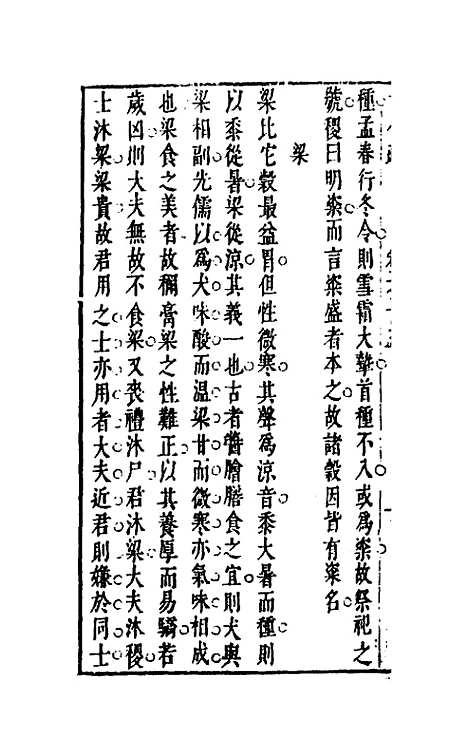 種孟春行冬令則雪霜大摯首種不入或爲粢故祭祀之
號稷曰明粢而言粢盛者本之故諸穀因皆有粢名
梁
梁比它穀最益胃但性微寒其聲爲涼音黍大暑而種則
以黍從暑梁從涼其義一也古者嘗膾膳食之宜則犬與
梁相副先儒以爲犬味酸而温梁甘而微寒亦氣味相成
也梁食之美者故稱膏梁之性難正以其養厚而易驕若
歲凶則大夫無故不食梁又喪禮沐尸君沐梁大夫沐稷
士沐梁梁貴故君用之士亦用者大夫近君則嫌於同士